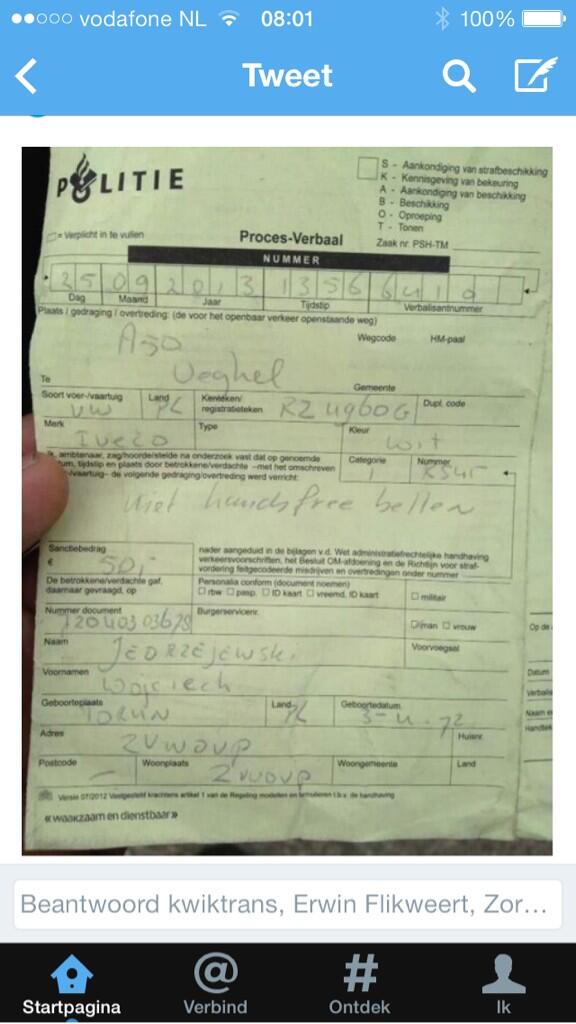 vodafone NL 08:01 100%
Tweet
POLITIE
S - Aankondiging van strafbeschikking
K - Kennisgeving van bekeuring
A - Aankondiging van beschikking
B - Beschikking
O - Oproeping
T - Tonen
= Verplicht in te vullen
Proces-Verbaal
Zaak nr. PSH-TM
NUMMER
25 09 2013 1356 6419
Dag Maand Jaar Tijdstip Verbalisantnummer
Plaats / gedraging / overtreding: (de voor het openbaar verkeer openstaande weg)
A50
Wegcode HM-paal
Te Veghel Gemeente
Soort voer-/vaartuig Land Kenteken/ registratieteken Dupl. code
VW PL RZ4960G
Merk Type Kleur
Iveco wit
Ik, ambtenaar, zag/hoorde/stelde na onderzoek vast dat op genoemde
datum, tijdstip en plaats door betrokkene/verdachte -met het omschreven
voer-/vaartuig- de volgende gedraging/overtreding werd verricht:
Categorie Nummer
Niet handsfree bellen
Sanctiebedrag
€ 50,-
nader aangeduid in de bijlagen v.d. Wet administratiefrechtelijke handhaving
verkeersvoorschriften, het Besluit OM-afdoening en de Richtlijn voor straf-
vordering feitgecodeerde misdrijven en overtredingen onder nummer
De betrokkene/verdachte gaf,
daarnaar gevraagd, op
Personalia conform (document noemen)
rbw pasp. ID kaart vreemd. ID kaart
militair
Nummer document Burgerservicenr.
man vrouw
Op de
Naam Voorvoegsel
JEDRZEJEWSKI
Voornamen
Wojciech
Datum
Geboorteplaats Land Geboortedatum
TORUN PL
Naam en
Adres Huisnr.
ZVWOVP
Postcode Woonplaats Woongemeente Land
– ZVWOVP
Versie 07/2012 Vastgesteld krachtens artikel 1 van de Regeling modellen en formulieren t.b.v. de handhaving
«waakzaam en dienstbaar»
Beantwoord kwiktrans, Erwin Flikweert, Zor...
Startpagina Verbind Ontdek Ik